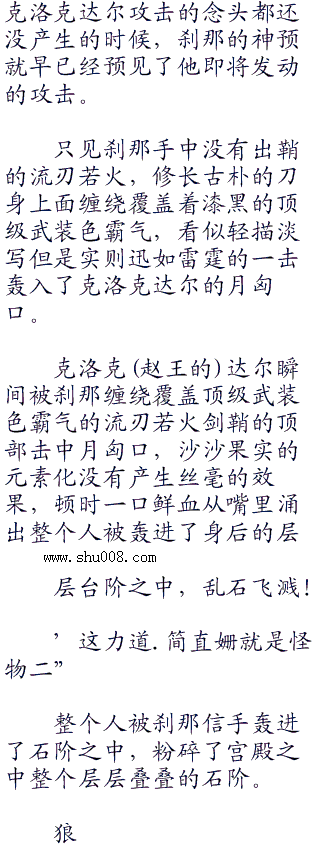 克洛克达尔攻击的念头都还
没产生的时候，刹那的神预
就早已经预见了他即将发动
的攻击。
只见刹那手中没有出鞘
的流刃若火，修长古朴的刀
身上面缠绕覆盖着漆黑的顶
级武装色霸气，看似轻描淡
写但是实则迅如雷霆的一击
轰入了克洛克达尔的月匈
口。
克洛克(赵王的)达尔瞬
间被刹那缠绕覆盖顶级武装
色霸气的流刃若火剑鞘的顶
部击中月匈口，沙沙果实的
元素化没有产生丝毫的效
果，顿时一口鲜血从嘴里涌
出整个人被轰进了身后的层
www.shu008.com
层台阶之中，乱石飞溅！
’这力道.简直姗就是怪
物二”
整个人被刹那信手轰进
了石阶之中，粉碎了宫殿之
中整个层层叠叠的石阶。
狼